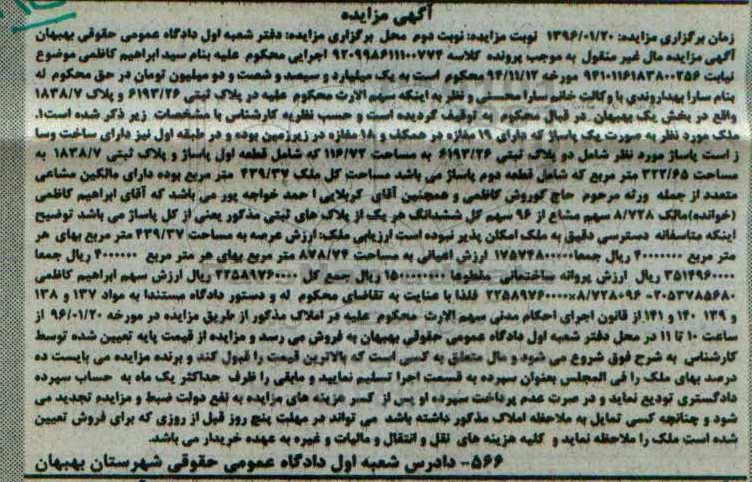 آگهی مزایده
زمان برگزاری مزایده: ۱۳۹۶/۰۱/۲۰ نوبت مزایده: نوبت دوم محل برگزاری مزایده: دفتر شعبه اول دادگاه عمومی حقوقی بهبهان
آگهی مزایده مال غیر منقول به موجب پرونده کلاسه ۹۲۰۹۹۸۶۱۱۱۰۰۷۷۴ اجرایی محکوم علیه بنام سید ابراهیم کاظمی موضوع
نیابت ۹۴۱۰۱۱۶۱۸۳۸۰۰۲۵۶ مورخه ۹۴/۱۱/۱۲ محکوم است به یک میلیارد و سیصد و شصت و دو میلیون تومان در حق محکوم له
بنام سارا بهداروندی با وکالت خانم سارا محسنی و نظر به اینکه سهم الارث محکوم علیه در پلاک ثبتی ۶۱۹۳/۲۶ و پلاک ۱۸۳۸/۷
واقع در بخش یک بهبهان در قبال محکوم به توقیف گردیده است و حسب نظریه کارشناس با مشخصات زیر ذکر شده است:
ملک مورد نظر به صورت یک پاساژ که دارای ۱۹ مغازه در همکف و ۱۸ مغازه در زیرزمین بوده و در طبقه اول نیز دارای ساخت وسا
ز است پاساژ مورد نظر شامل دو پلاک ثبتی ۶۱۹۳/۲۶ به مساحت ۱۱۶/۷۲ که شامل قطعه اول پاساژ و پلاک ثبتی ۱۸۳۸/۷ به
مساحت ۳۲۲/۶۵ متر مربع که شامل قطعه دوم پاساژ می باشد مساحت کل ملک ۴۳۹/۳۷ متر مربع بوده دارای مالکین مشاعی
متعدد از جمله ورثه مرحوم حاج کوروش کاظمی و همچنین آقای کربلایی احمد خواجه پور می باشد که آقای ابراهیم کاظمی
(خوانده) مالک ۸/۷۲۸ سهم مشاع از ۹۶ سهم کل ششدانگ هر یک از پلاک های ثبتی مذکور یعنی از کل پاساژ می باشد توضیح
اینکه متاسفانه دسترسی دقیق به ملک امکان پذیر نبوده است ارزیابی ملک: ارزش عرصه به مساحت ۴۳۹/۳۷ متر مربع بهای هر
متر مربع ۴۰۰۰۰۰۰۰ ریال جمعا ۱۷۵۷۴۸۰۰۰۰۰ ارزش اعیانی به مساحت ۸۷۸/۷۴ متر مربع بهای هر متر مربع ۴۰۰۰۰۰۰ ریال جمعا
۳۵۱۴۹۶۰۰۰۰ ریال ارزش پروانه ساختمانی مقطوعا ۱۵۰۰۰۰۰۰۰۰ ریال جمع کل ۲۲۵۸۹۷۶۰۰۰۰ ریال ارزش سهم ابراهیم کاظمی
۲۰۵۳۷۸۵۶۸۰-۸/۷۲۸۰۹۶×۲۲۵۸۹۷۶۰۰۰۰ فلذا با عنایت به تقاضای محکوم له و دستور دادگاه مستندا به مواد ۱۳۷ و ۱۳۸
و ۱۳۹ و ۱۴۰ و ۱۴۱ از قانون اجرای احکام مدنی سهم الارث محکوم علیه در املاک مذکور از طریق مزایده در مورخه ۹۶/۰۱/۲۰ از
ساعت ۱۰ تا ۱۱ در محل دفتر شعبه اول دادگاه عمومی حقوقی بهبهان به فروش می رسد و مزایده از قیمت پایه تعیین شده توسط
کارشناس به شرح فوق شروع می شود و مال متعلق به کسی است که بالاترین قیمت را قبول کند و برنده مزایده می بایست ده
درصد بهای ملک را فی المجلس بعنوان سپرده به قسمت اجرا تسلیم نمایید و مابقی را ظرف حداکثر یک ماه به حساب سپرده
دادگستری تودیع نماید و در صرت عدم پرداخت سپرده او پس از کسر هزینه های مزایده به نفع دولت ضبط و مزایدم تجدید می
شود و چنانچه کسی تمایل به ملاحظه املاک مذکور داشته باشد می تواند در مهلت پنج روز قبل از روزی که برای فروش تعیین
شده است ملک را ملاحظه نماید و کلیه هزینه های نقل و انتقال و مالیات و غیره به عهده خریدار می باشد.
۵۶۶- دادرس شعبه اول دادگاه عمومی حقوقی شهرستان بهبهان